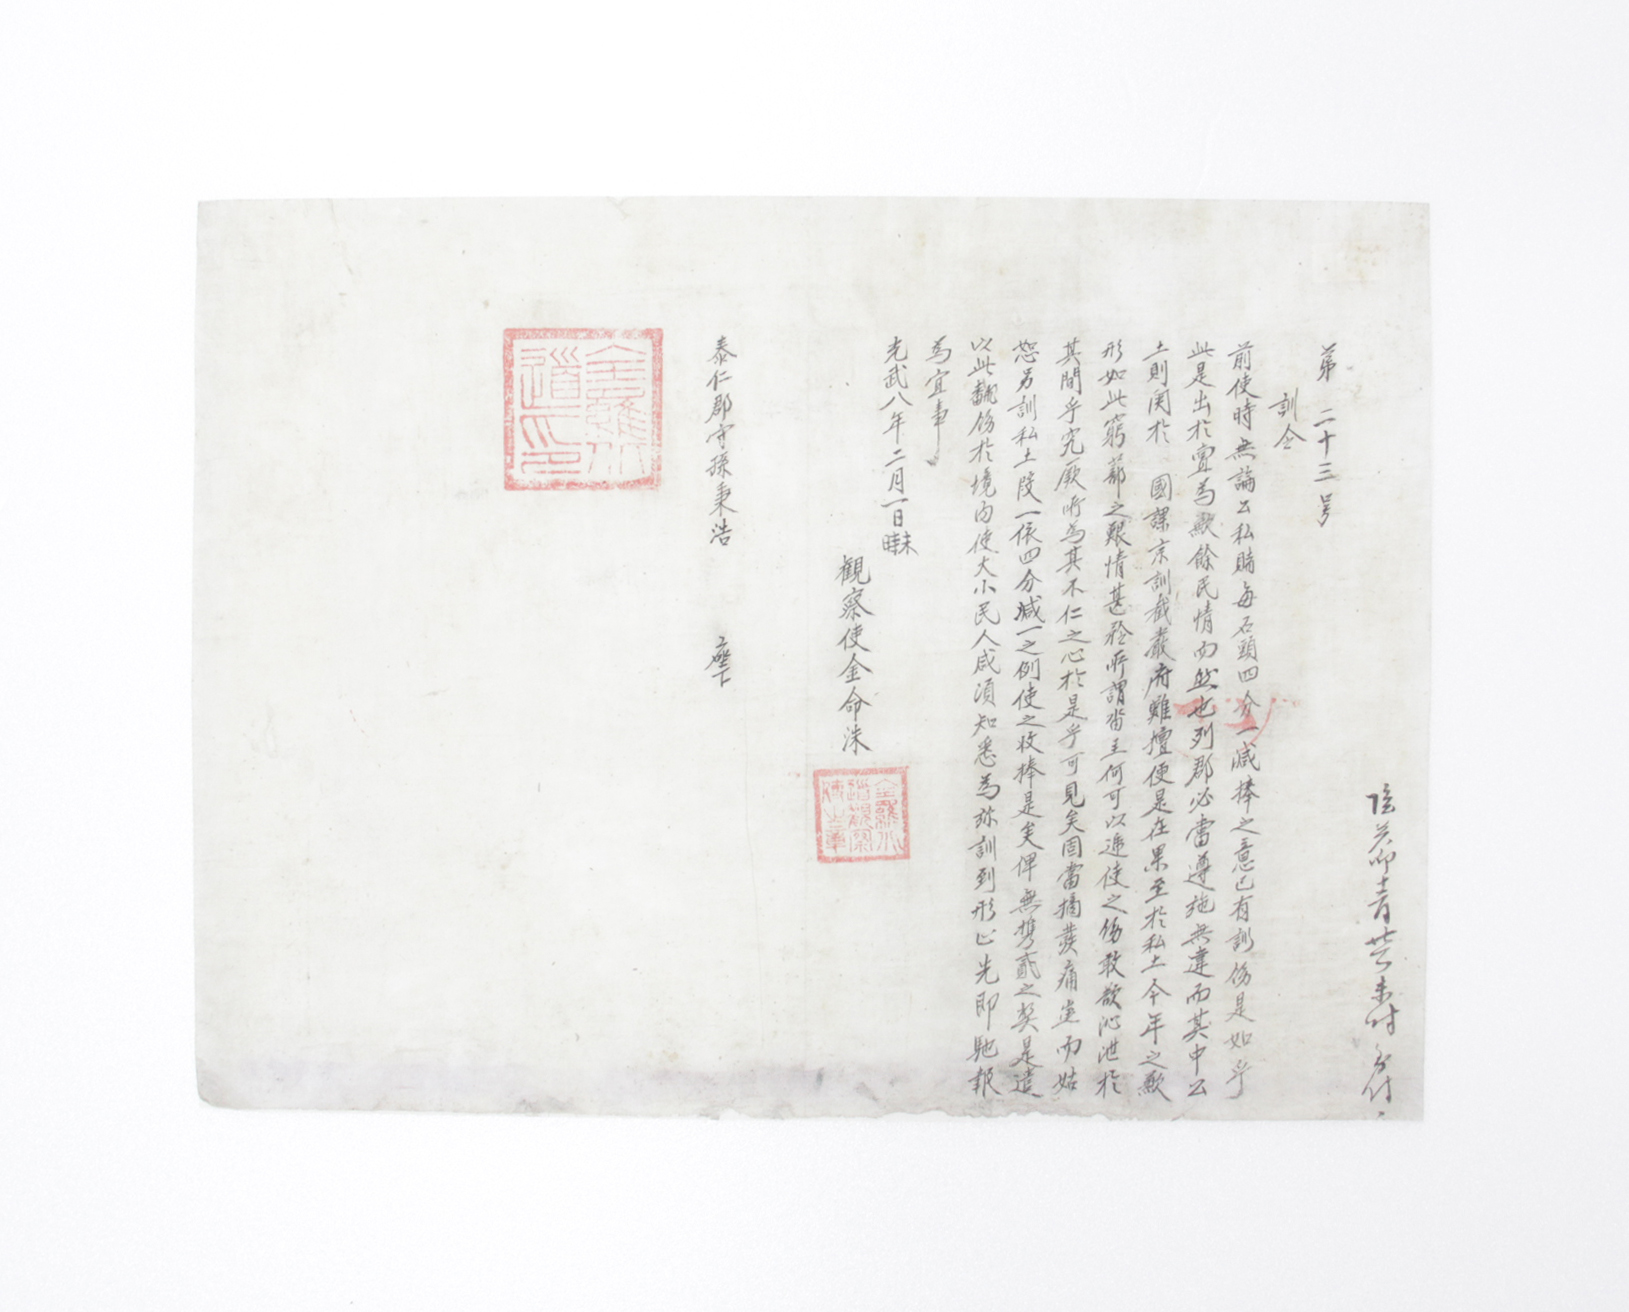 第二十三号
訓令
前使時無論公私賭每石頭四分一減捧之意已有訓飭是如乎
此是出於實為歉餘民情而然也列郡必當遵施無違而其中公
土則関於 國課京訓截嚴府雖擅便是在果至於私土今年之歉
形如此窮蔀之艱情甚矜所謂畓主何可以违使之飭敢欲沁泄於
其間乎究厥所為其不仁之心於是乎可見矣固當摘發痛塞而姑
恕另訓私土段一依四分減一之例使之收捧是矣俾無携貳之契是遣
以此飜飭於境內使大小民人咸須知悉為旀訓到形止先即馳報
為宜事
光武八年二月一日未時
觀察使金命洙
泰仁郡守孫秉浩 座下
全羅北道觀察使之章
全羅北道印